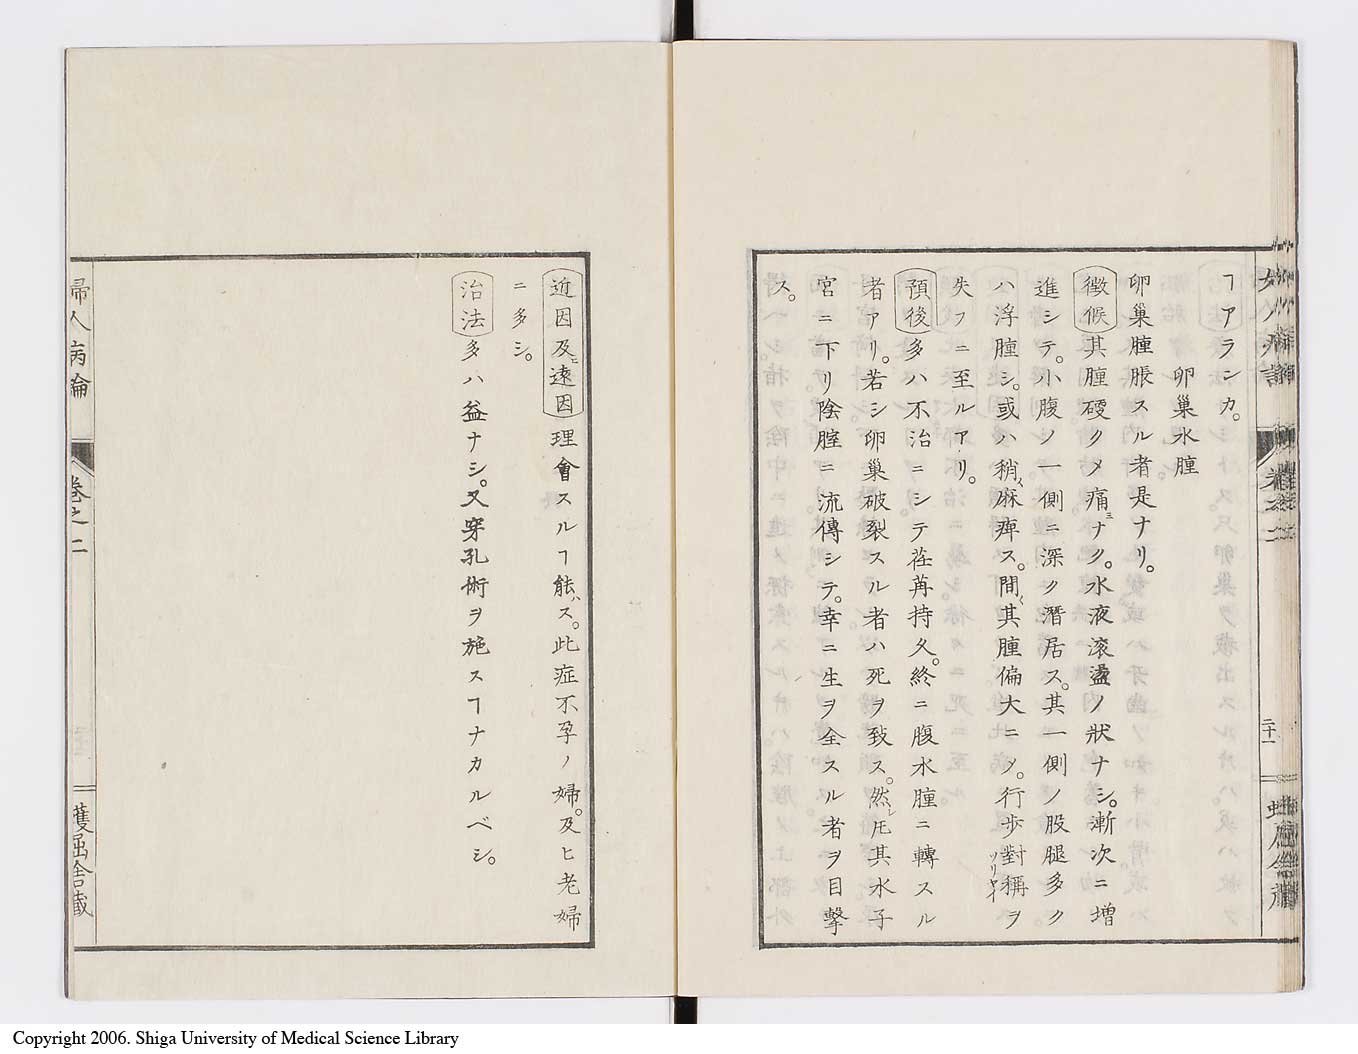 ヿアランカ。
卵巢水腫
卵巢腫脹スル者是ナリ。
徴候其腫硬クメ痛ミナク。水液滚盪ノ狀ナシ。漸次ニ増
進シテ。小腹ノ一側ニ深ク潛居ス。其一側ノ股腿多ク
ハ浮腫シ。或ハ稍〻麻痺ス。間〻其腫偏大ニメ。行步對稱ツリヤイヲ
失フニ至ルアリ。
預後多ハ不治ニシテ荏苒持久。終ニ腹水腫ニ轉スル
者アリ。若シ卵巢破裂スル者ハ死ヲ致ス。然レ𪜈其水子
宮ニ下リ陰腟ニ流傳シテ。幸ニ生ヲ全スル者ヲ目擊
ス。
二十一
近因及ニ遠因理會スルヿ能ハス。此症不孕ノ婦。及ヒ老婦
ニ多シ。
治法多ハ益ナシ。又穿孔術ヲ施スヿナカルベシ。
婦人病論
卷之二
蠖屈舍藏
Copyright 2006. Shiga University of Medical Science Library